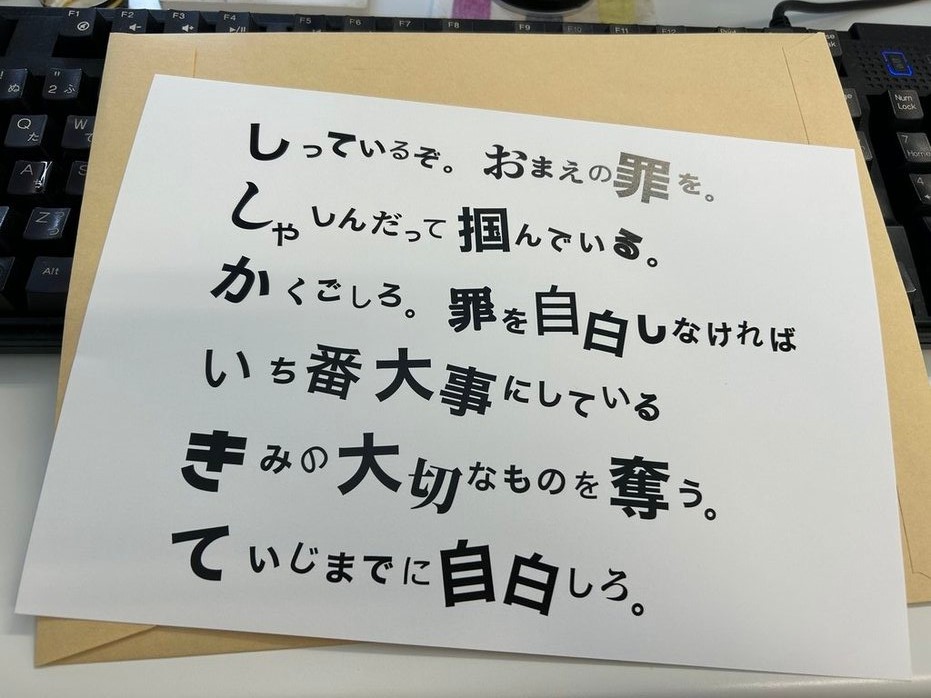 F1
F2
F3
F4
F5
F6
F7
F8
F9
F10
F11
F12
ぬ
" 2 ふ
Q た
W て
A
S
Z
Alt
Num Lock
7 Home
4
しっているぞ。おまえの罪を。
しゃしんだって掴んでいる。
かくごしろ。罪を自白しなければ
いち番大事にしている
きみの大切なものを奪う。
ていじまでに自白しろ。